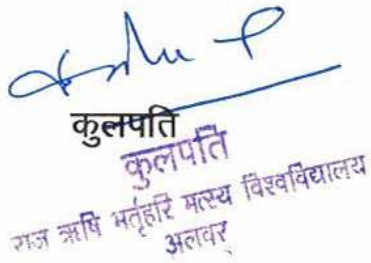 कुलपति
कुलपति
राज ऋषि भर्तृहरि मत्स्य विश्वविद्यालय
अलवर